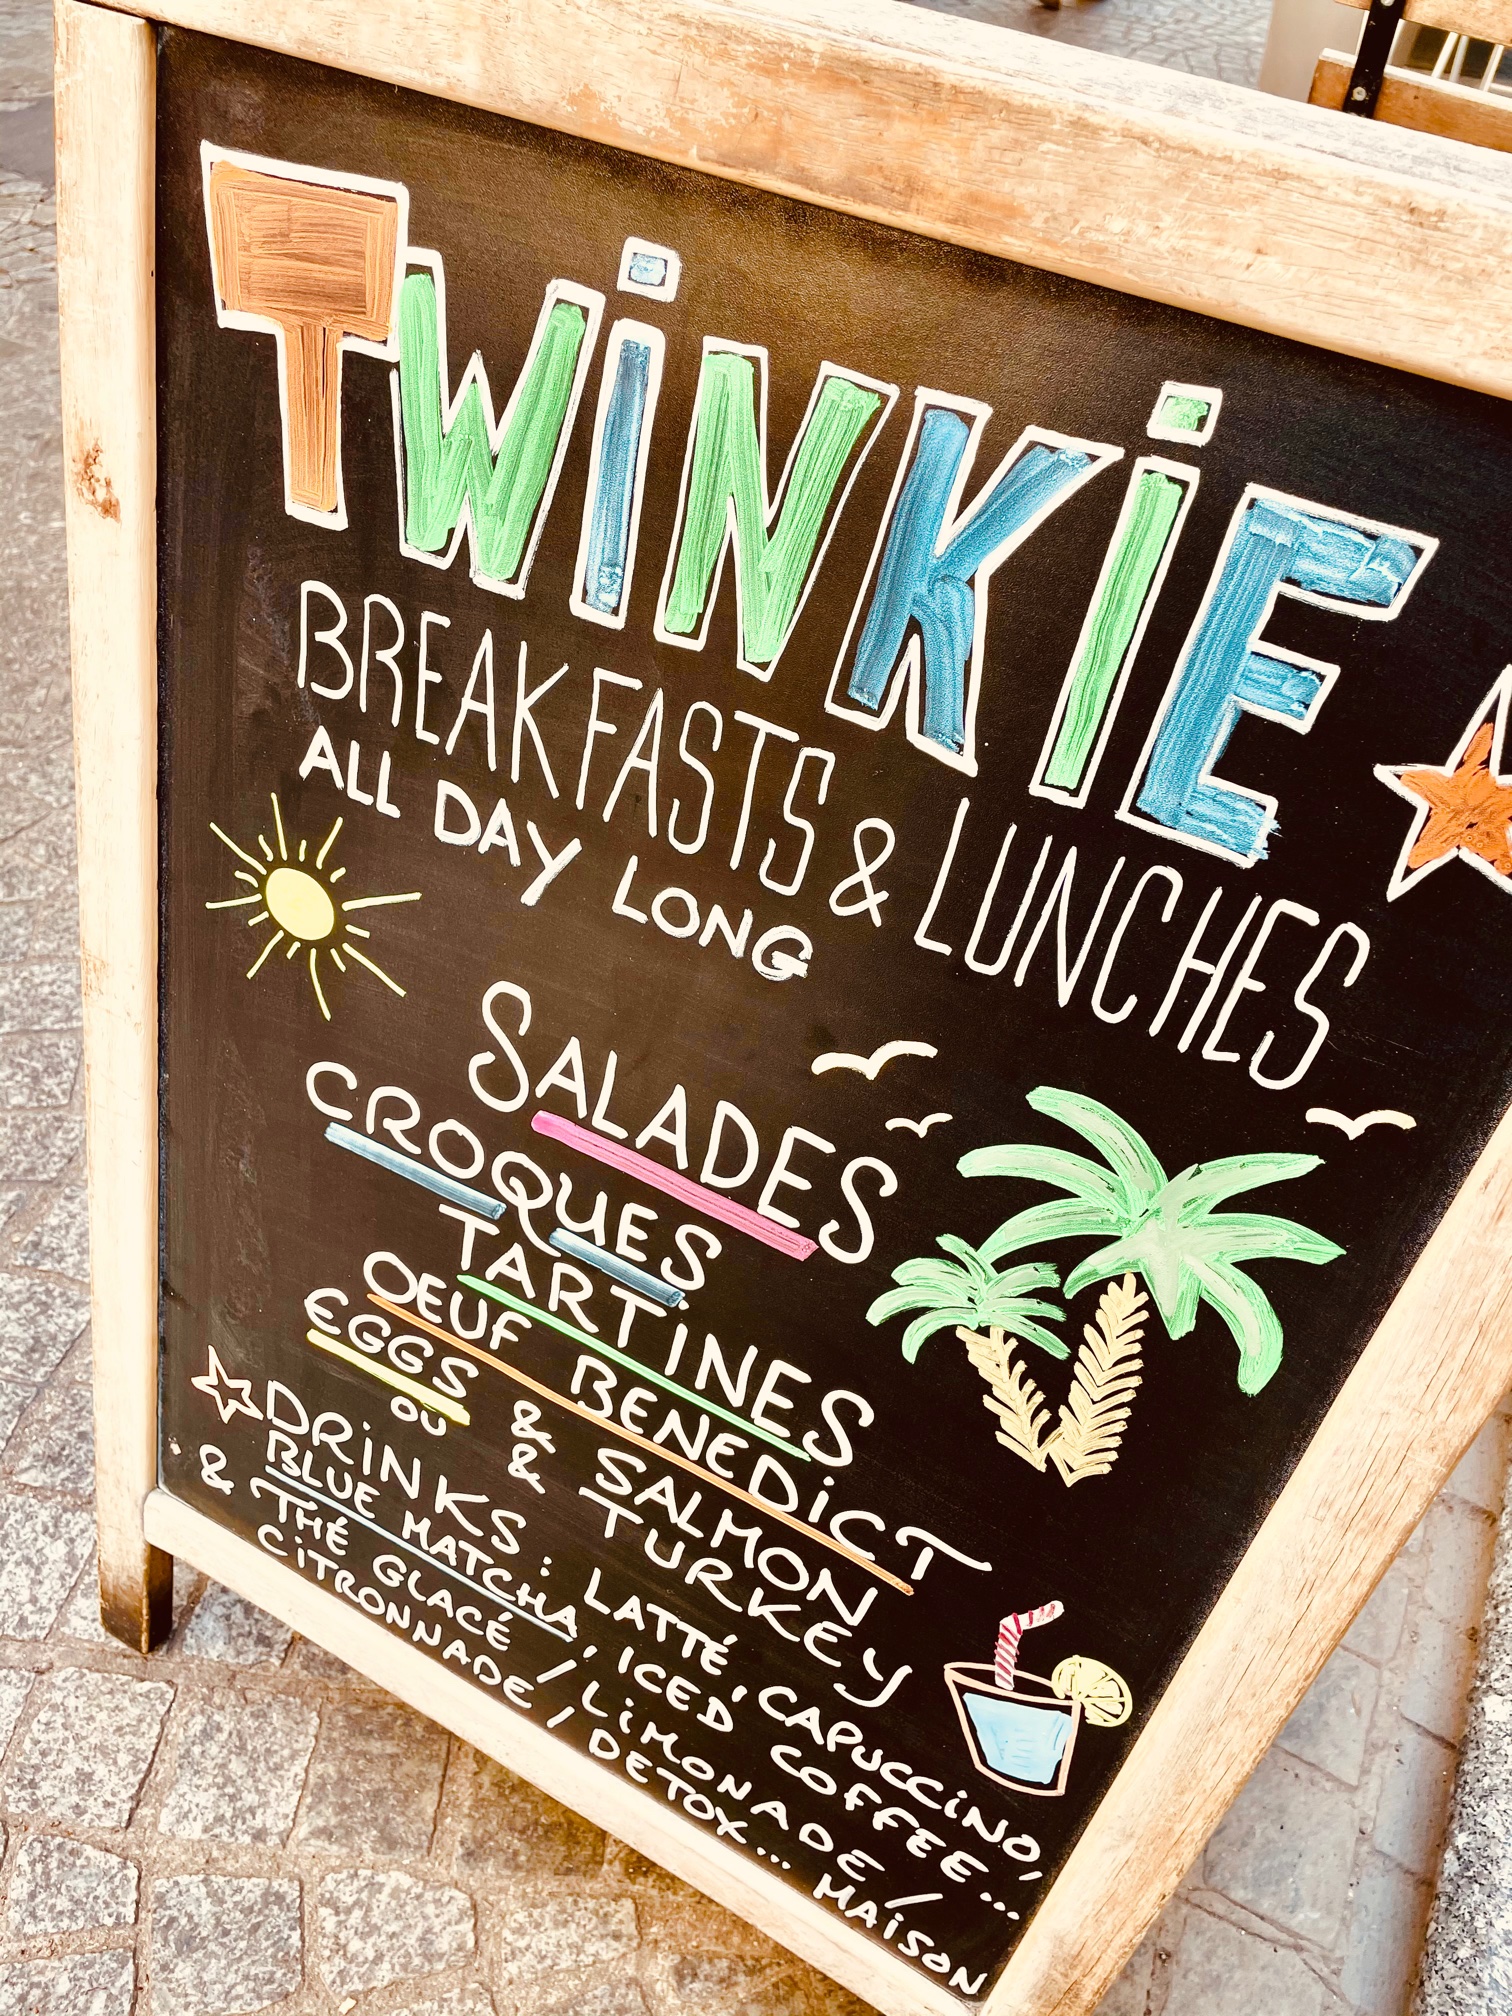 TWiNKiE
BREAKFASTS & LUNCHES
ALL DAY LONG
SALADES
CROQUES
TARTiNES
OEUF BENEDiCT
EGGS & SALMON
OU & TURKEY
DRiNKS : LATTÉ, CAPUCCiNO,
BLUE MATCHA, iCED COFFEE...
& THÉ GLACÉ / LiMONADE /
CiTRONNADE / DETOX... MAiSON